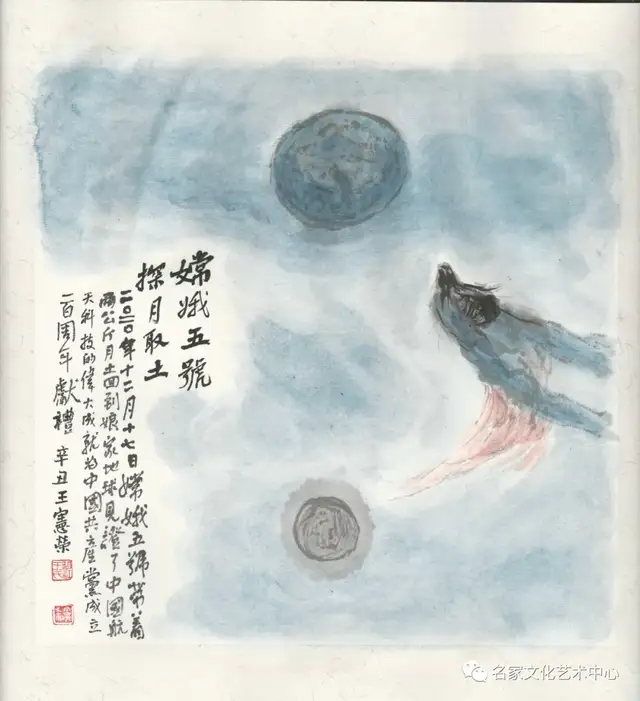 嫦娥五號
探月取土
二〇二〇年十二月十七日嫦娥五號帶着
兩公斤月土回到娘家地球見證了中國航
天科技的偉大成就為中國共產黨成立
一百周年獻禮 辛丑王憲榮
名家文化艺术中心